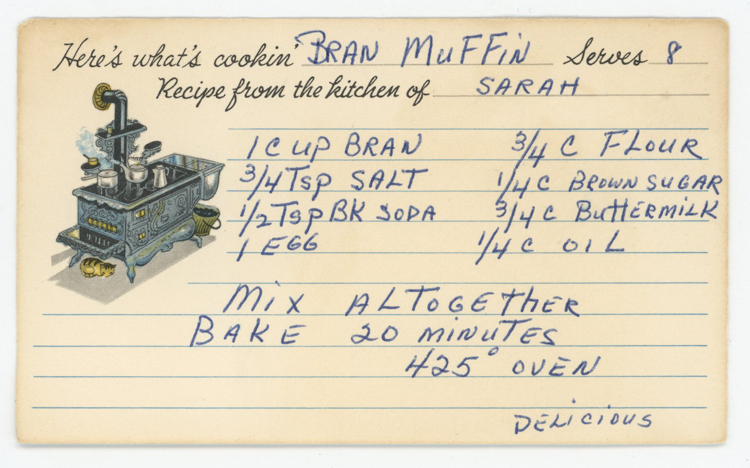 Here's what's cookin' BRAN MUFFIN Serves 8
Recipe from the kitchen of SARAH
1 CUP BRAN 3/4 C FLOUR
3/4 Tsp SALT 1/4 C BROWN SUGAR
1/2 Tsp BK SODA 3/4 C BUTTERMILK
1 EGG 1/4 C OIL
MIX ALTOGETHER
BAKE 20 MINUTES
425° OVEN
DELICIOUS